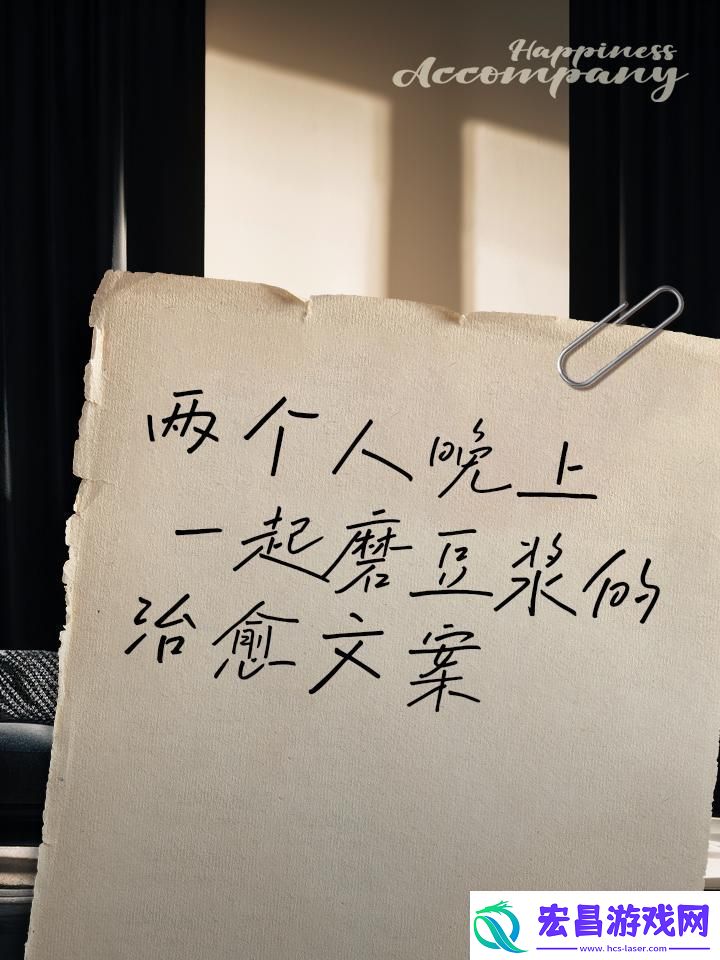 Happiness
Accompany
两个人晚上
一起磨豆浆的
治愈文案
宏昌游戏网
www.hcs-laser.com